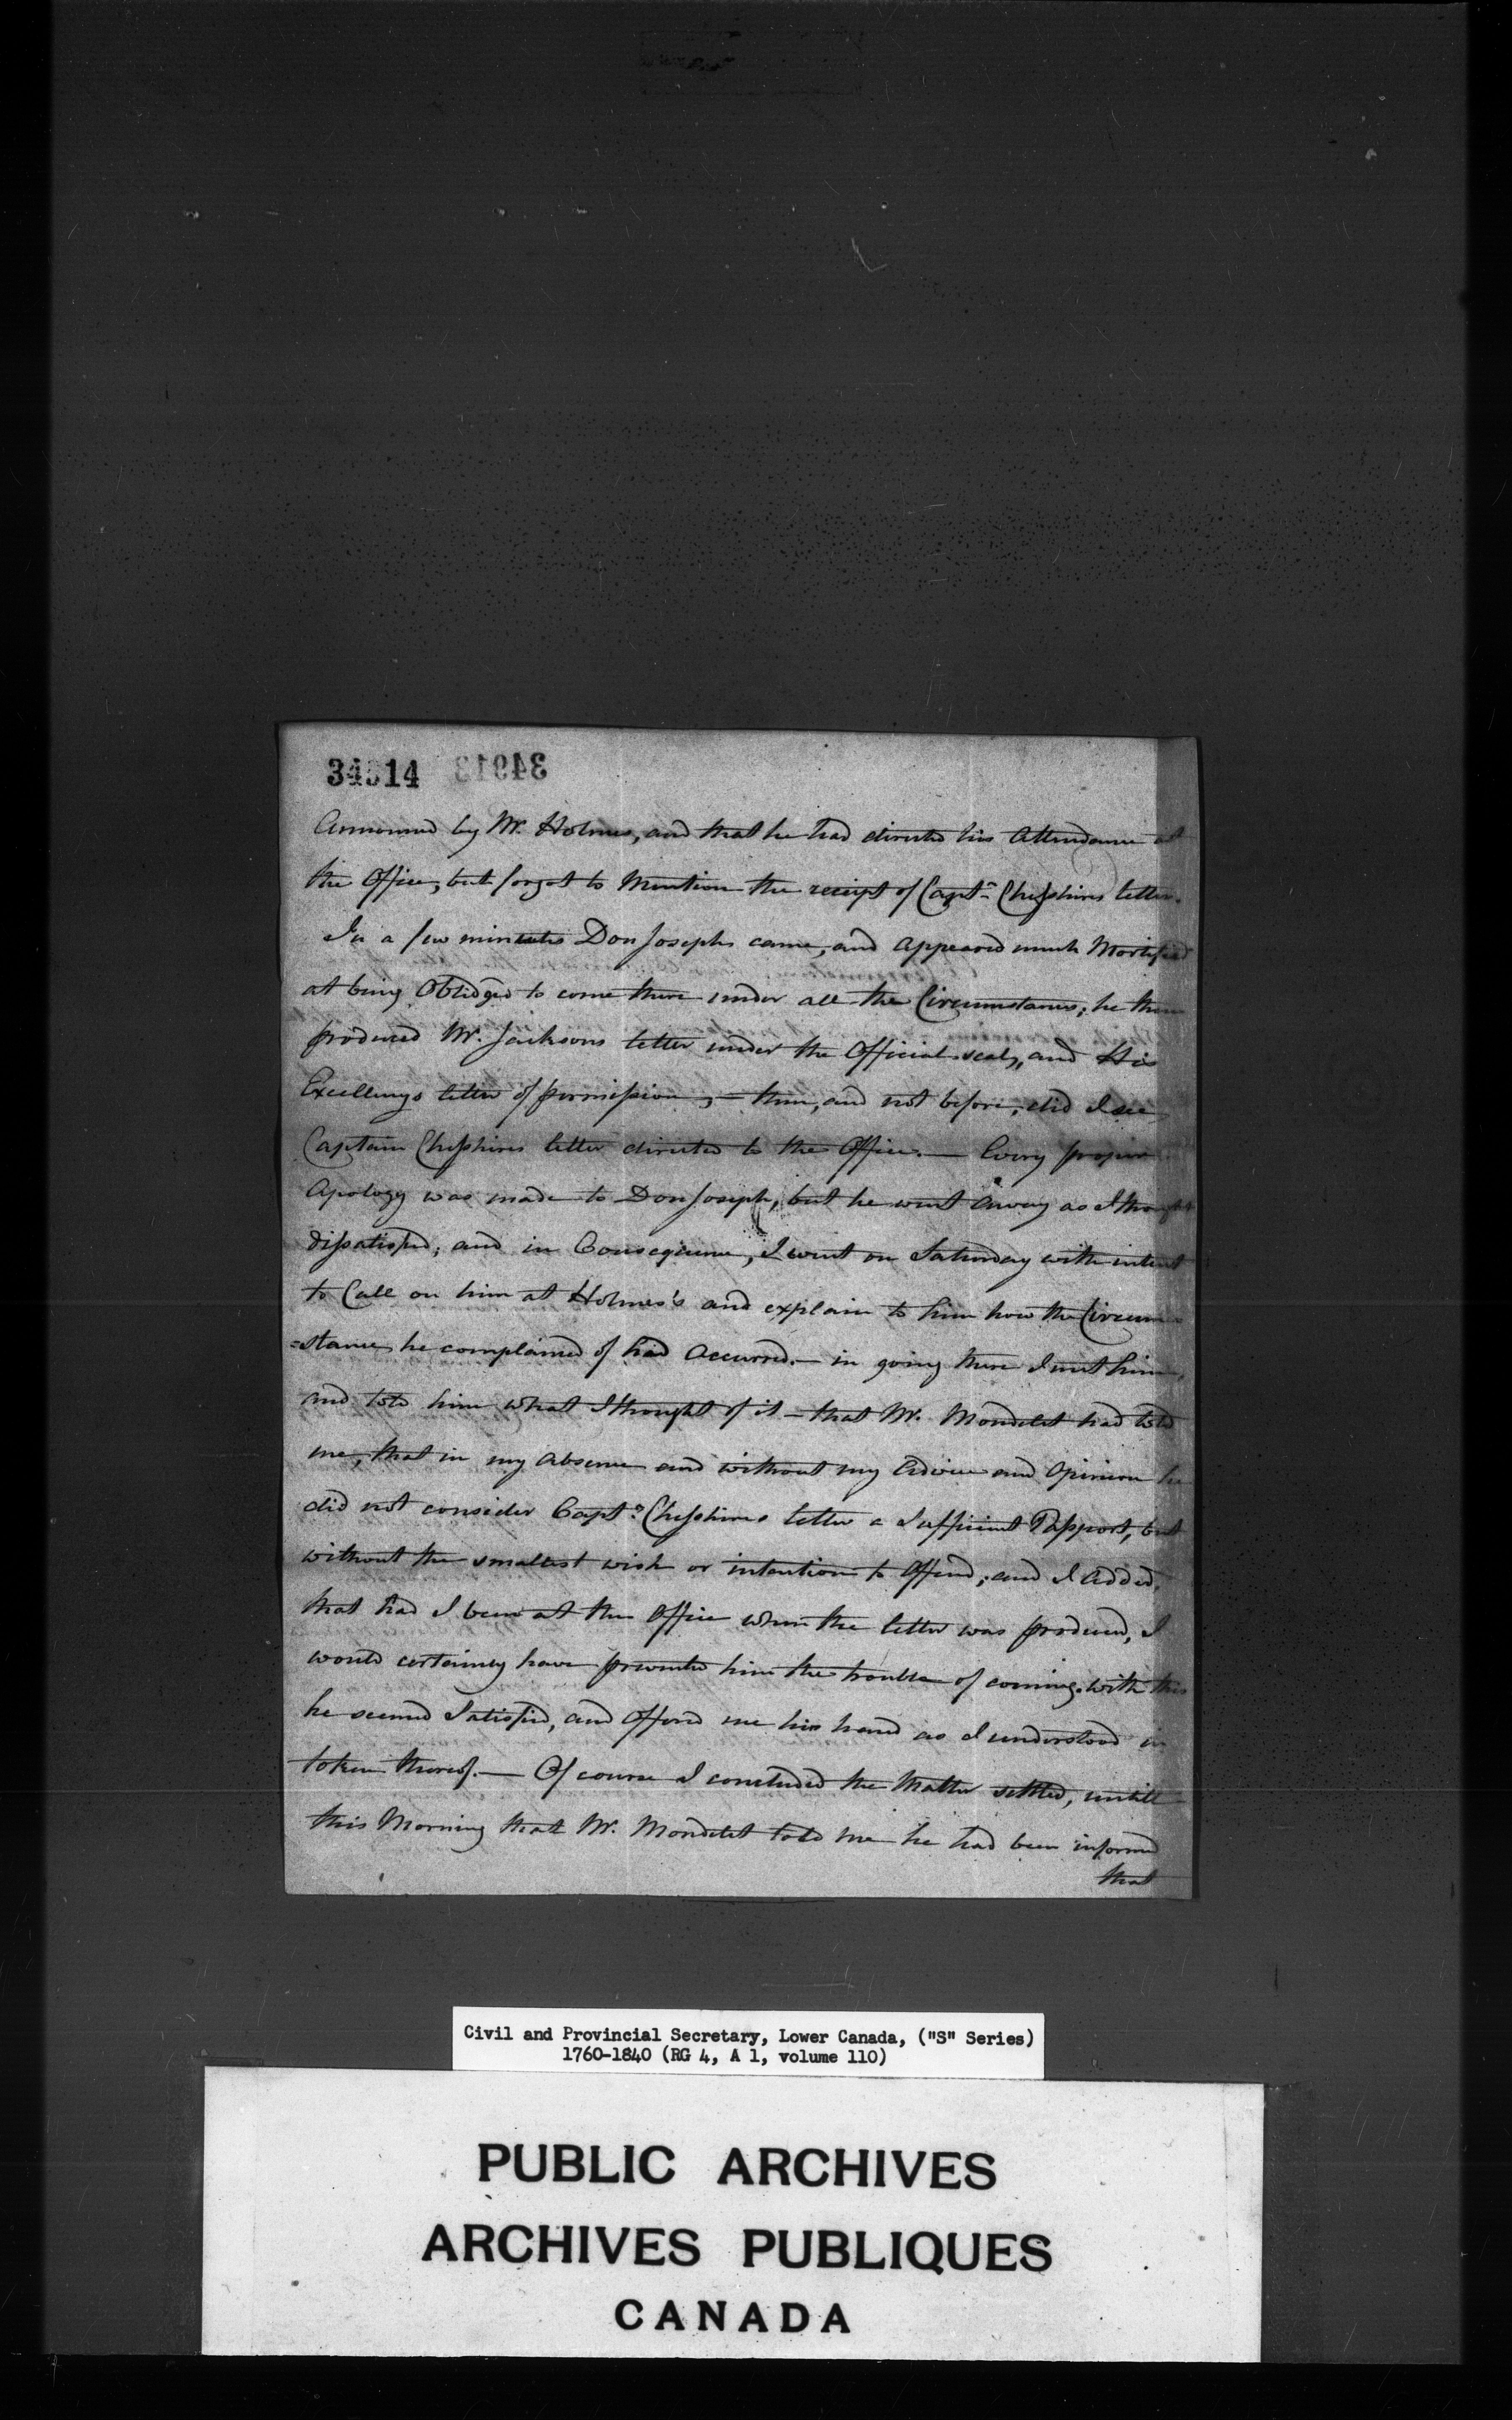 34914 34913
Announced by Mr. Holmes, and that he had directed his Attendance at
the Office, but forgot to Mention the receipt of Captn. Chesshires letter.
In a few minutes Don Joseph came, and appeared much Mortified
at being Oblidged to come there under all the Circumstances; he then
produced Mr. Jacksons letter under the Official seal, and His
Excellencys letter of permission, — then, and not before, did I see
Captain Chesshires letter directed to the Office. — Every proper
Apology was made to Don Joseph, but he went away as I thought
dissatisfied; and in Consequence, I went on Saturday with intent
to Call on him at Holmes's and explain to him how the Circum=
=stance he complained of had Accurred. — in going there I met him,
and told him what I thought of it — that Mr. Mondelet had told
me, that in my Absence and without my Advice and Opinion he
did not consider Captn. Chesshires letter a Sufficient Passport, but
without the smallest wish or intention to Offend; and I added,
that had I been at the Office when the letter was produced, I
would certainly have prevented him the trouble of coming. with this
he seemed Satisfied, and Offered me his hand as I understood in
token thereof. — Of course I concluded the Matter settled, untill
this Morning that Mr. Mondelet told me he had been informed
that
Civil and Provincial Secretary, Lower Canada, ("S" Series)
1760-1840 (RG 4, A 1, volume 110)
PUBLIC ARCHIVES
ARCHIVES PUBLIQUES
CANADA